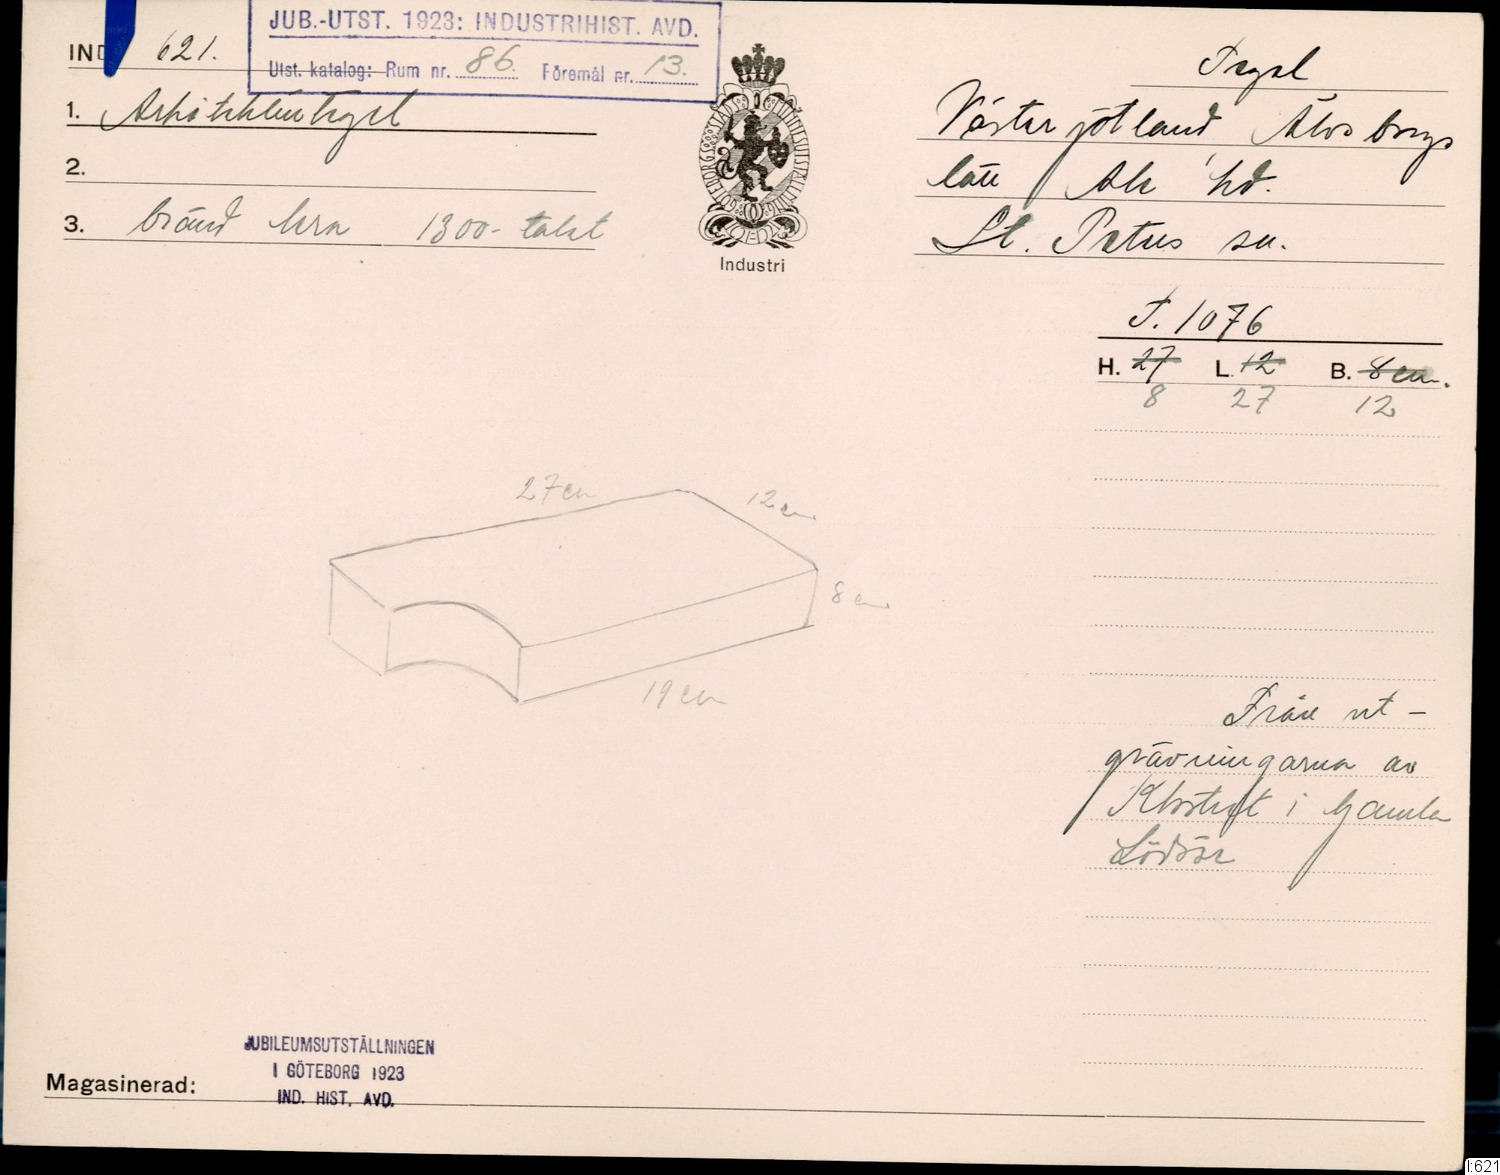 JUB.-UTST. 1923: INDUSTRIHIST. AVD.
Utst. katalog: Rum nr. 86. Föremål nr. 13.
IND 621.
1. Arkitekturtegel
2.
3. bränd lera 1300-talet
Industri
Tegel
Västergötland Älvsborgs
län Ale hd.
St. Peters sn.
T. 1076
H. 27 L. 12 B. 8 cm.
8 27 12
27 cm
12 cm
8 cm
19 cm
Från ut-
grävningarna av
Klostret i Gamla
Lödöse
JUBILEUMSUTSTÄLLNINGEN
I GÖTEBORG 1923
IND. HIST. AVD.
Magasinerad:
I:621